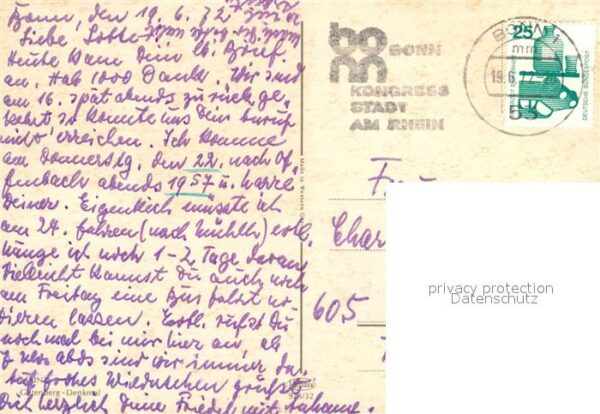 Bonn, den 19.6.72
Liebe Lotte
Heute kam Dein lb. Brief
an. Hab 1000 Dank. Wir sind
am 16. spät abends zurück ge-
kehrt so konnte uns Dein
nicht erreichen. Ich komme
am Donnerstag, den 22. nach Of-
fenbach abends 1957 u. warte
Deiner. Eigentlich müsste ich
am 24. fahren (nach) evtl.
hänge ich noch 1-2 Tage daran
Vielleicht kannst Du auch noch
am Freitag eine Bus fahrt no
tieren lassen. Evtl. rufst Du
noch mal bei mir hier an, ab
7 abds sind wir immer da.
Auf frohes Wiedersehen grüßt
Dich herzlich Deine Friedel mit
Gutenberg-Denkmal
Made in Western
bonn
BONN
KONGRESS
STADT
AM RHEIN
BONN
mm
19.6.72
53
25
DEUTSCHE BUNDESPOST
Frau
Char
605
privacy protection
Datenschutz